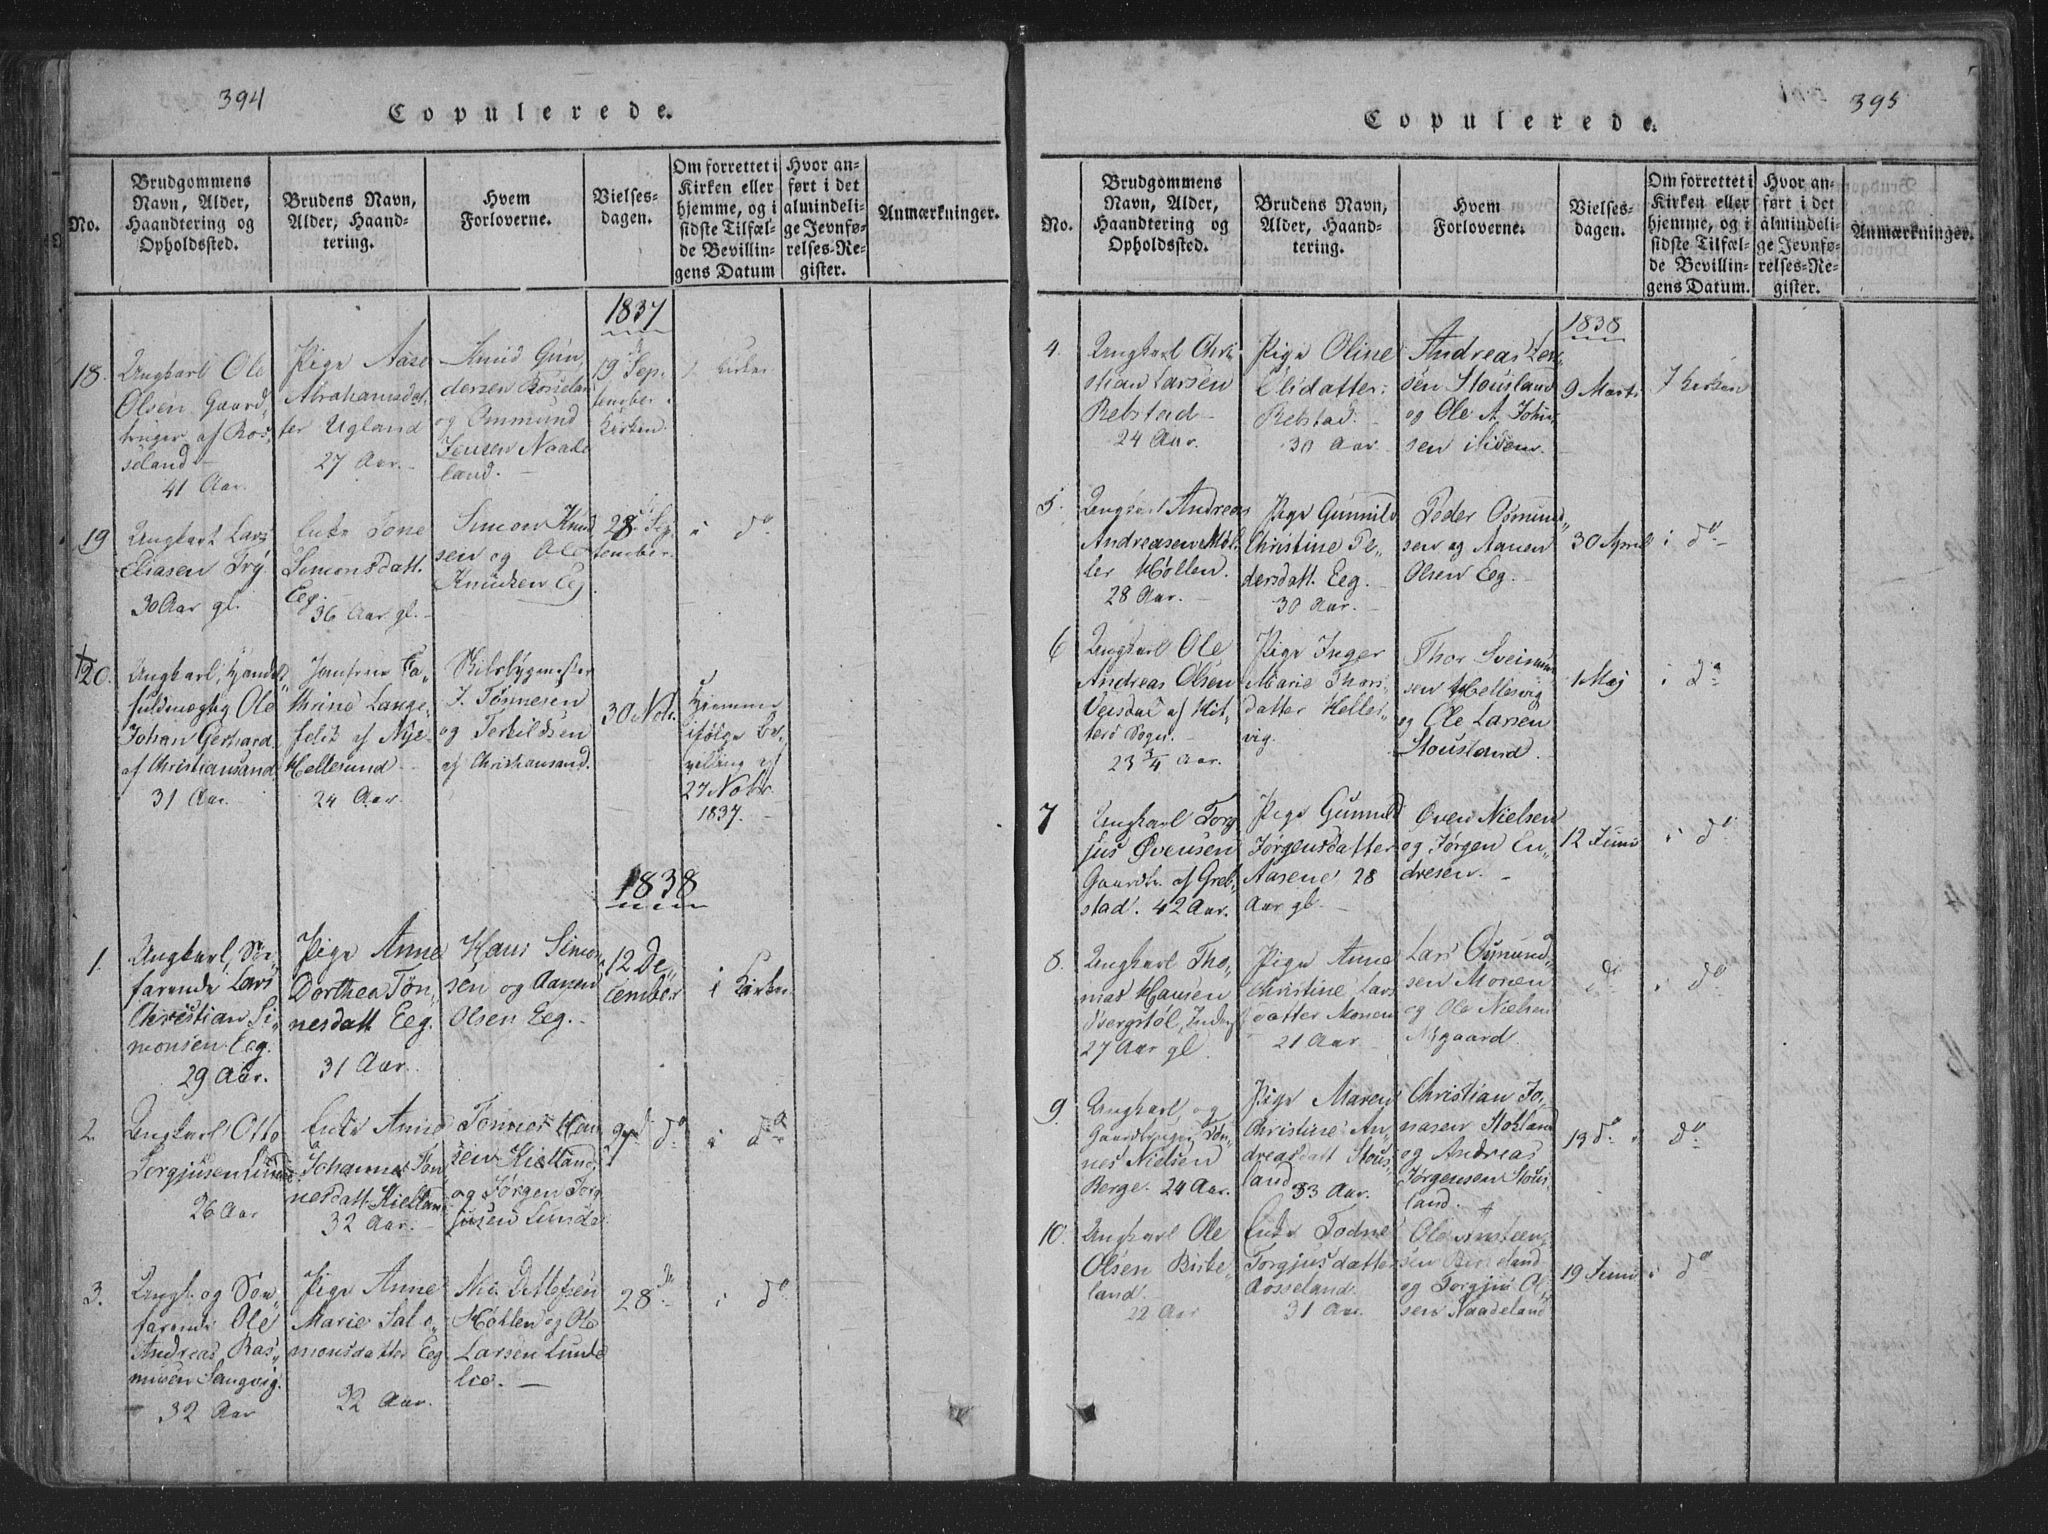 394
Copulerede.
No.
Brudgommens Navn, Alder, Haandtering og Opholdssted.
Brudens Navn, Alder, Haandtering.
Hvem Forloverne.
Vielsesdagen.
Om forrettet i Kirken eller hjemme, og i sidste Tilfælde Bevillingens Datum
Hvor anført i det almindelige Jevnførelses-Register.
Anmærkninger.
1837
18.
Ungkarl Ole
Olsen Gaard
bruger af Ros,
seland
41 Aar.
Pige Aase
Abrahamsdat
ter Ugland
27 Aar.
Knud Gun
dersen Rosseland
og Ommund
Jensen Naade
land.
19 Sep
tember i
Kirken.
i Kirken
19
Ungkarl Lars
Eliasen Try
30 Aar gl.
Enke Tone
Simonsdatt.
Eeg.
36 Aar gl.
Simon Knud
sen og Ole
Knudsen Eg
28 Sep
tember.
i do
20.
Ungkarl, Handels
fuldmægtig Ole
Johan Gerhard
af Christiansand.
31 Aar.
Jomfrue Ca
thrine Lange
feldt af Nye
Hellesund
24 Aar.
Skibsbygmester
J. Tønnesen
og Terkildsen
af Christiansand.
30 Nobr.
Hjemme
ifølge Be,
villing af
27 Nobr
1837.
1838
1.
Ungkarl, Søe,
farende Lars
Christian Si,
monsen Eeg.
29 Aar.
Pige Anne
Dorthea Tøn,
nesdatt Eeg.
31 Aar.
Hans Simon
sen og Aanen
Olsen Eeg.
12 De,
cember
i Kirken
2.
Ungkarl Otto
Torgjusen Lunde
26 Aar
Enke Anne
Johanne Tøn
nesdatt. Kielland
32 Aar.
Tønnes Han
sen Kielland,
og Jørgen Torg
jusen Lunde
do
i do
3.
Ungk. og Søe,
farende Ole
Andreas Ras,
musen Langvig.
32 Aar
Pige Anne
Marie Salo,
monsdatter Eeg
32 Aar.
Nic. Ditlefsen
Høllen og Ole
Larsen Lunde
lie.
28 do
i do
395
Copulerede.
No.
Brudgommens Navn, Alder, Haandtering og Opholdssted.
Brudens Navn, Alder, Haandtering.
Hvem Forloverne.
Vielsesdagen.
Om forrettet i Kirken eller hjemme, og i sidste Tilfælde Bevillingens Datum.
Hvor anført i det almindelige Jevnførelses-Register.
Anmærkninger.
1838
4.
Ungkarl Chri
stian Larsen
Rebstad
24 Aar.
Pige Oline
Elisdatter
Rebstad.
30 Aar.
Andreas Lar
sen Stousland
og Ole A. John
sen
9 Marts
I Kirken
5.
Ungkarl Andreas
Andreasen Møl
ler Høllen.
28 Aar.
Pige Gunnild
Christine Pe,
dersdatt. Eeg.
30 Aar.
Peder Osmund,
sen og Aanen
Olsen Eeg.
30 April
i do
6
Ungkarl Ole
Andreas Olsen
Veisdal af Hit
terø Sogn.
23 3/4 Aar.
Pige Inger
Marie Thors
datter Helles
vig.
Thor Sveinun
sen Hellesvig
og Ole Larsen
Stousland.
1 Maj
i do
7
Ungkarl Torg
jus Øvensen
Gaardbr. af Greb,
stad. 42 Aar.
Pige Gunnild
Jørgensdatter
Aasene 28
Aar gl.
Oven Nielsen
og Jørgen En,
dresen.
12 Juni
i do
8.
Ungkarl Tho
mas Hansen
27 Aar gl.
Pige Anne
Christine Lars
datter Monen
21 Aar
Lars Osmund,
sen Monen
og Ole Nielsen
Nygaard.
do
i do
9.
Ungkarl og
Gaardbruger Tøn,
nes Nielsen
Berge. 24 Aar.
Pige Maren
Christine An,
dreasdatt Stous,
land 33 Aar.
Christian Jo,
nasen Stokland
og Andreas
Jørgensen Stous,
land.
13 do
i do
10.
Ungkarl Ole
Olsen Birke
land.
22 Aar
Enke Todne
Torgjusdatter
Rosseland.
31 Aar.
Ole Aasteen,
sen Birkeland
og Torgjus Ol,
sen Naadeland
19 Juni
i do